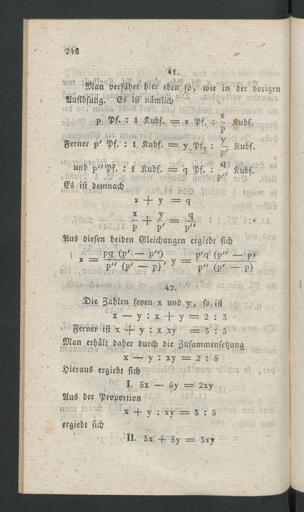 248
41.
Man verfährt hier eben so, wie in der vorigen
Auflösung. Es ist nämlich
p Pf. : 1 Kubf. = x Pf. : x/p Kubf.
Ferner p′ Pf. : 1 Kubf. = y Pf. : y/p′ Kubf.
und p″ Pf. : 1 Kubf. = q Pf. : q/p″ Kubf.
Es ist demnach
x + y = q
x/p + y/p′ = q/p″
Aus diesen beiden Gleichungen ergiebt sich
x = pq (p′ — p″) / p″ (p′ — p), y = p′q (p″ — p) / p″ (p′ — p)
42.
Die Zahlen seyen x und y, so ist
x — y : x + y = 2 : 5
Ferner ist x + y : xy = 5 : 5
Man erhält daher durch die Zusammensetzung
x — y : xy = 2 : 5
Hieraus ergiebt sich
I. 5x — 5y = 2xy
Aus der Proportion
x + y : xy = 5 : 5
ergiebt sich
II. 5x + 5y = 5xy